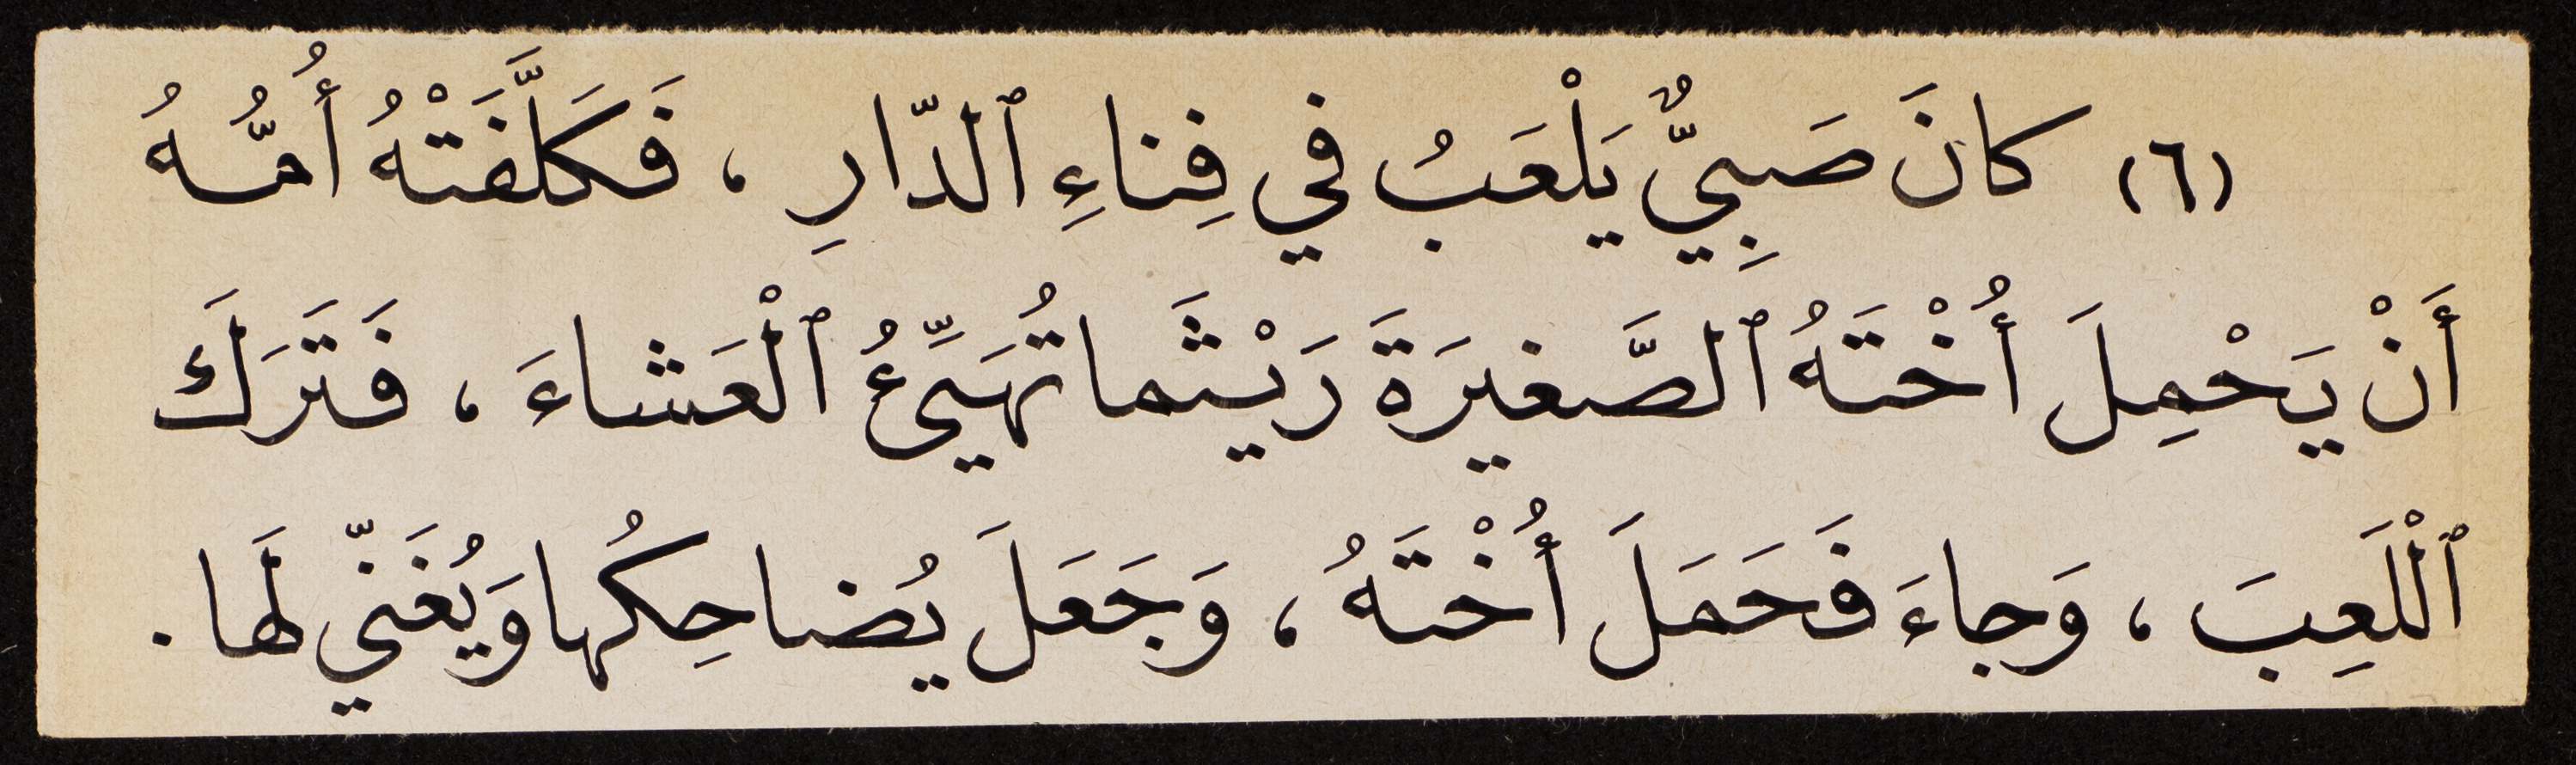 (٦) كانَ صَبِيٌّ يَلْعَبُ في فِناءِ ٱلدّارِ ، فَكَلَّفَتْهُ أُمُّهُ
أَنْ يَحْمِلَ أُخْتَهُ ٱلصَّغيرَةَ رَيْثَما تُهَيِّئُ ٱلْعَشاءَ ، فَتَرَكَ
ٱلْلَعِبَ ، وَجاءَ فَحَمَلَ أُخْتَهُ ، وَجَعَلَ يُضاحِكُها وَيُغَنّي لَها .